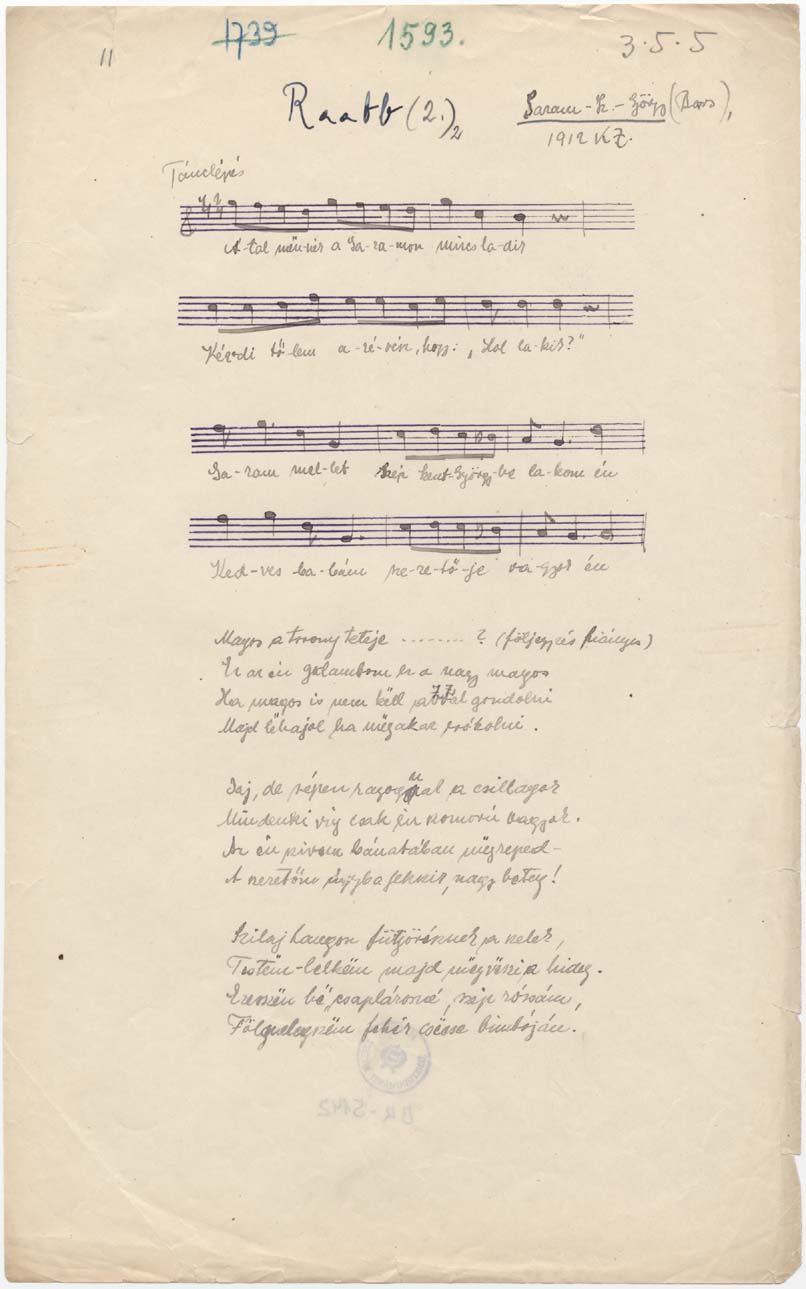 11
1739
1593.
3.5.5
Raabb (2.)2
Garam-Sz.-György (Bars),
1912 KZ.
Tánclépés
A-tal mën-nék a Ga-ra-mon nincs la-dik
Kérdi tő-lem a-ré-vész, hogy: „Hol la-kik?"
Ga-ram mel-let Szép Szent-György-be la-kom én
Ked-ves ba-bám sze-re-tő-je va-gyok én
Magos a torony teteje ........ ? (följegyzés hiányos)
Ez az én galambom ez a nagy magos
Ha magos is nem këll azzal gondolni
Majd lëhajol ha mëgakar csókolni.
Jaj, de szépen ragyognak a csillagok
Mindenki víg csak én komorú vagyok.
Az én szívem bánatában mëgreped-
A szeretőm ágyba fekszik, nagy beteg!
Szilaj hangon fütyörésznek a szelek,
Testëm-lelkëm majd mëgvëszi a hideg.
Eresszën bé, csaplárosné, szép rózsám,
Fölmelegszëm fehér csëcse bimbóján.
BR-5142